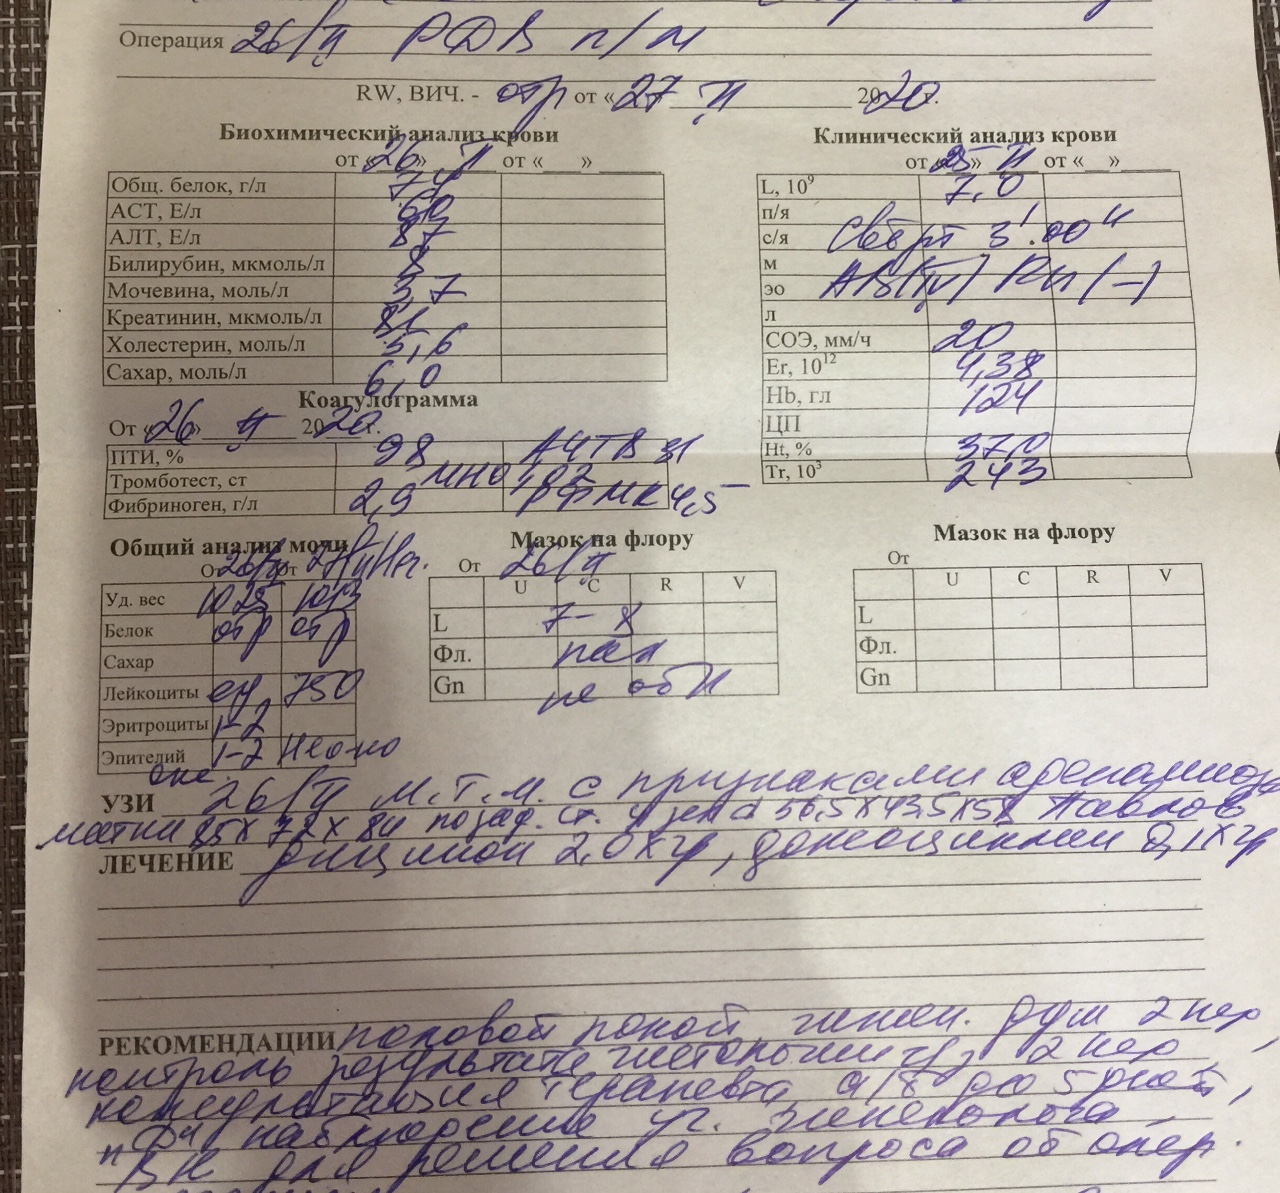 Операция 26/II РДВ п/м
RW, ВИЧ. - отр от «27 II 2020г.
Биохимический анализ крови
от «26» II от «__»
Общ. белок, г/л
АСТ, Е/л 60
АЛТ, Е/л 87
Билирубин, мкмоль/л 8
Мочевина, моль/л 3,7
Креатинин, мкмоль/л 81
Холестерин, моль/л 5,6
Сахар, моль/л 6,0
Клинический анализ крови
от «25» II от «__»
L, 10⁹ 7,0
п/я
с/я Сверт 3'.00"
м
эо АВ(IV) Rh (-)
л
СОЭ, мм/ч 20
Er, 10¹² 4,38
Hb, гл 124
ЦП
Ht, % 37,0
Tr, 10³ 243
Коагулограмма
От «26» II 2020г.
ПТИ, % 98 АЧТВ 31
Тромботест, ст МНО 1,02
Фибриноген, г/л 2,9 РФМК 4,5
Общий анализ мочи
От 26/II от 27/II
Уд. вес 1025 1013
Белок отр отр
Сахар
Лейкоциты ед 750
Эритроциты 1-2
Эпителий 1-2
Мазок на флору
От 26/II
U C R V
L 7-8
Фл. пал
Gn не обн
Мазок на флору
От
U C R V
L
Фл.
Gn
УЗИ 26/II м.т.м. с признаками аденомиоза
матки 85х72х84 позад. ст. узел d 56,5х43,5х58
ЛЕЧЕНИЕ дицинон 2,0хгр, доксициклин 0,1хгр
РЕКОМЕНДАЦИИ половой покой, гигиен. душ 2 нед,
контроль результата гистологии ч/з 2 нед,
консультация терапевта, а/б до 5 дней,
наблюдение уч. гинеколога
ВК для решения вопроса об опер.